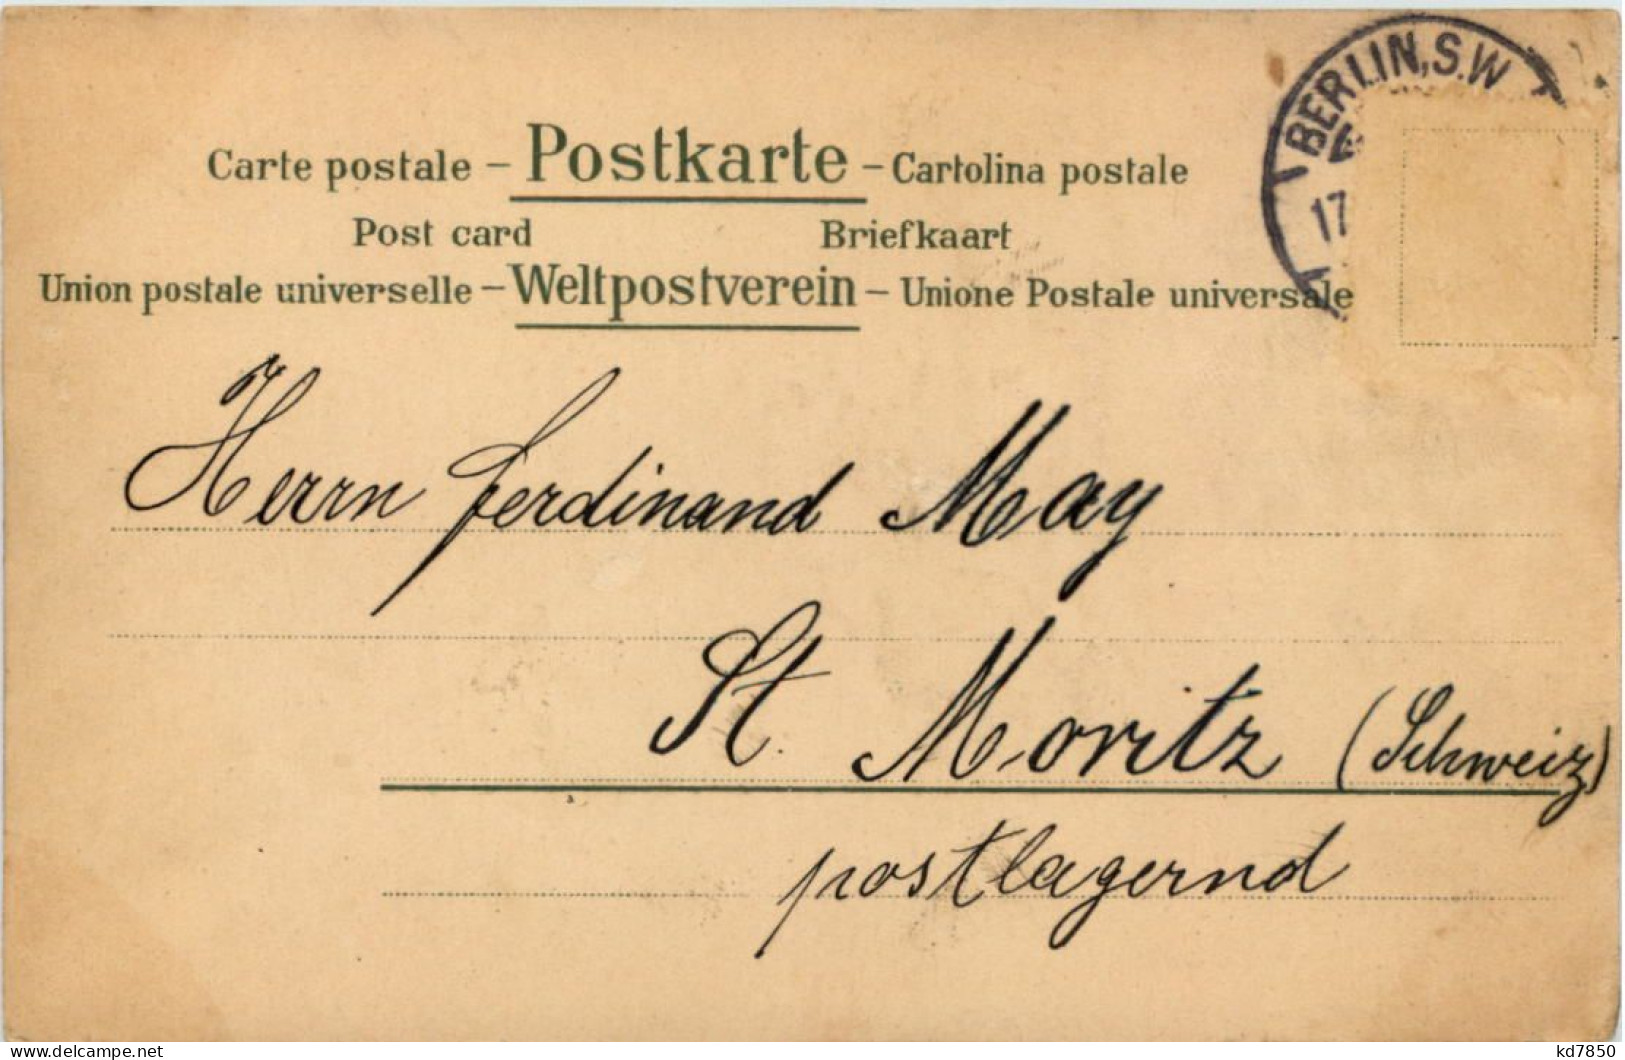 BERLIN, S.W
17
Carte postale – Postkarte – Cartolina postale
Post card Briefkaart
Union postale universelle – Weltpostverein – Unione Postale universale
Herrn Ferdinand May
St. Moritz (Schweiz)
postlagernd
delcampe.net
kd7850